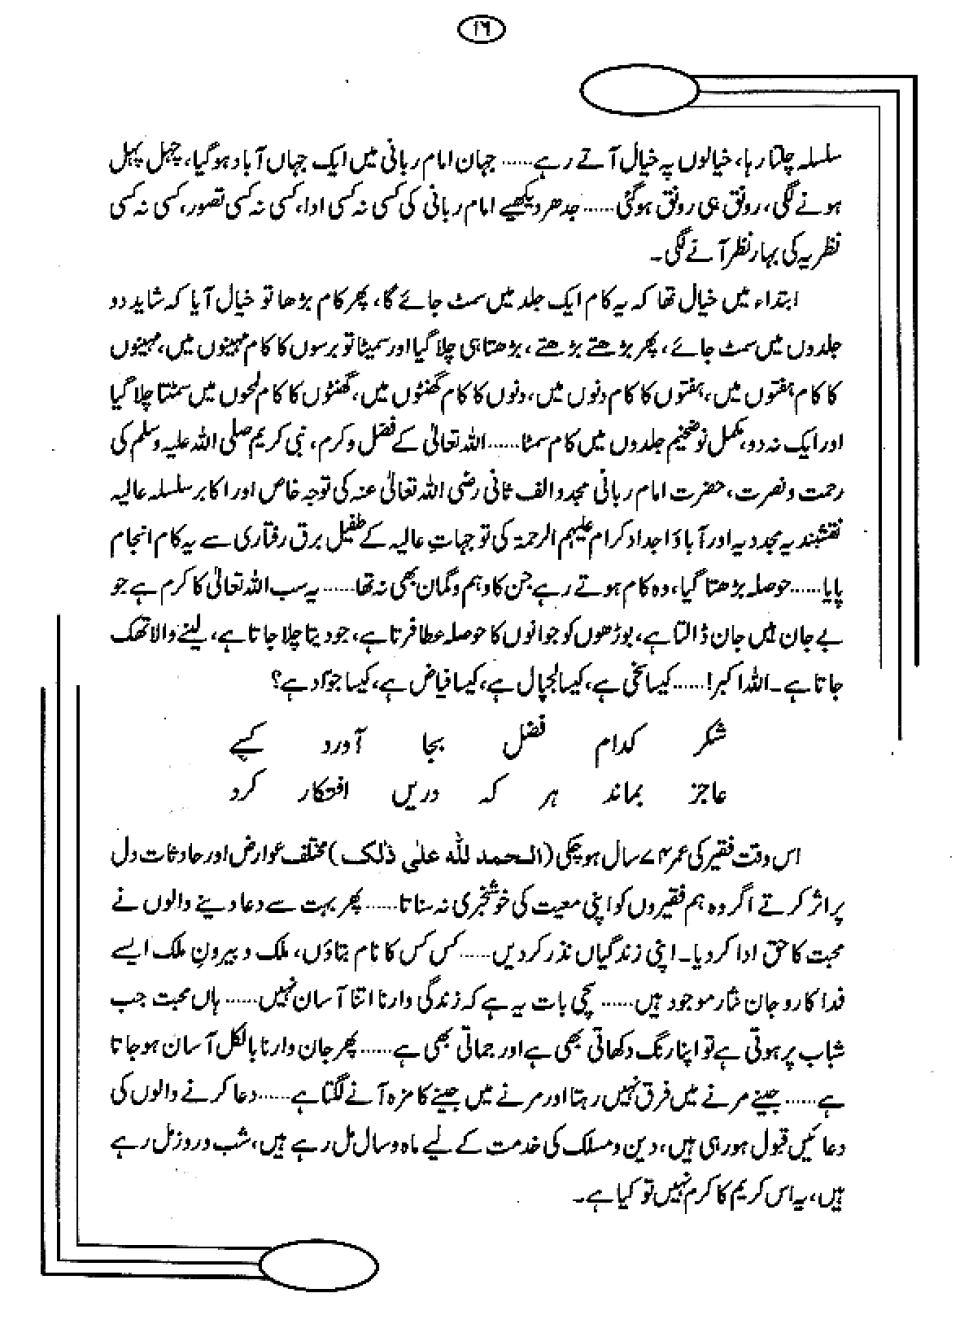 ۲۶
سلسلہ چلتا رہا، خیالوں پہ خیال آتے رہے...... جہان امام ربانی میں ایک جہاں آباد ہوگیا، چہل پہل
ہونے لگی، رونق ہی رونق ہوگئی...... جدھر دیکھیے امام ربانی کی کسی نہ کسی ادا، کسی نہ کسی تصور، کسی نہ کسی
نظریہ کی بہار نظر آنے لگی۔
ابتداء میں خیال تھا کہ یہ کام ایک جلد میں سمٹ جائے گا، پھر کام بڑھا تو خیال آیا کہ شاید دو
جلدوں میں سمٹ جائے، پھر بڑھتے بڑھتے، بڑھتا ہی چلا گیا اور سمیٹا تو برسوں کا کام مہینوں میں، مہینوں
کا کام ہفتوں میں، ہفتوں کا کام دنوں میں، دنوں کا کام گھنٹوں میں، گھنٹوں کا کام لمحوں میں سمٹتا چلا گیا
اور ایک نہ دو، مکمل نو ضخیم جلدوں میں کام سمٹا...... اللہ تعالیٰ کے فضل و کرم، نبی کریم صلی اللہ علیہ وسلم کی
رحمت و نصرت، حضرت امام ربانی مجدد الف ثانی رضی اللہ تعالیٰ عنہ کی توجہ خاص اور اکابر سلسلہ عالیہ
نقشبندیہ مجددیہ اور آباؤ اجداد کرام علیہم الرحمۃ کی توجہات عالیہ کے طفیل برق رفتاری سے یہ کام انجام
پایا...... حوصلہ بڑھتا گیا، وہ کام ہوتے رہے جن کا وہم و گمان بھی نہ تھا...... یہ سب اللہ تعالیٰ کا کرم ہے جو
بے جان میں جان ڈالتا ہے، بوڑھوں کو جوانوں کا حوصلہ عطا فرتا ہے، جو دیتا چلا جاتا ہے، لینے والا تھک
جاتا ہے۔ اللہ اکبر!...... کیسا سخی ہے، کیسا لجپال ہے، کیسا فیاض ہے، کیسا جواد ہے؟
شکر کدام فضل بجا آورد کسے
عاجز بماند ہر کہ دریں افتکار کرد
اس وقت فقیر کی عمر ۷۴ سال ہوچکی (الحمد للہ علی ذلک) مختلف عوارض اور حادثات دل
پر اثر کرتے اگر وہ ہم فقیروں کو اپنی معیت کی خوشخبری نہ سناتا...... پھر بہت سے دعا دینے والوں نے
محبت کا حق ادا کردیا۔ اپنی زندگیاں نذر کردیں...... کس کس کا نام بتاؤں، ملک و بیرونِ ملک ایسے
فداکار و جان نثار موجود ہیں...... سچی بات یہ ہے کہ زندگی وارنا اتنا آسان نہیں...... ہاں محبت جب
شباب پر ہوتی ہے تو اپنا رنگ دکھاتی بھی ہے اور جماتی بھی ہے...... پھر جان وارنا بالکل آسان ہوجاتا
ہے...... جینے مرنے میں فرق نہیں رہتا اور مرنے میں جینے کا مزہ آنے لگتا ہے...... دعا کرنے والوں کی
دعائیں قبول ہورہی ہیں، دین و مسلک کی خدمت کے لیے ماہ و سال مل رہے ہیں، شب و روز مل رہے
ہیں، یہ اس کریم کا کرم نہیں تو کیا ہے۔